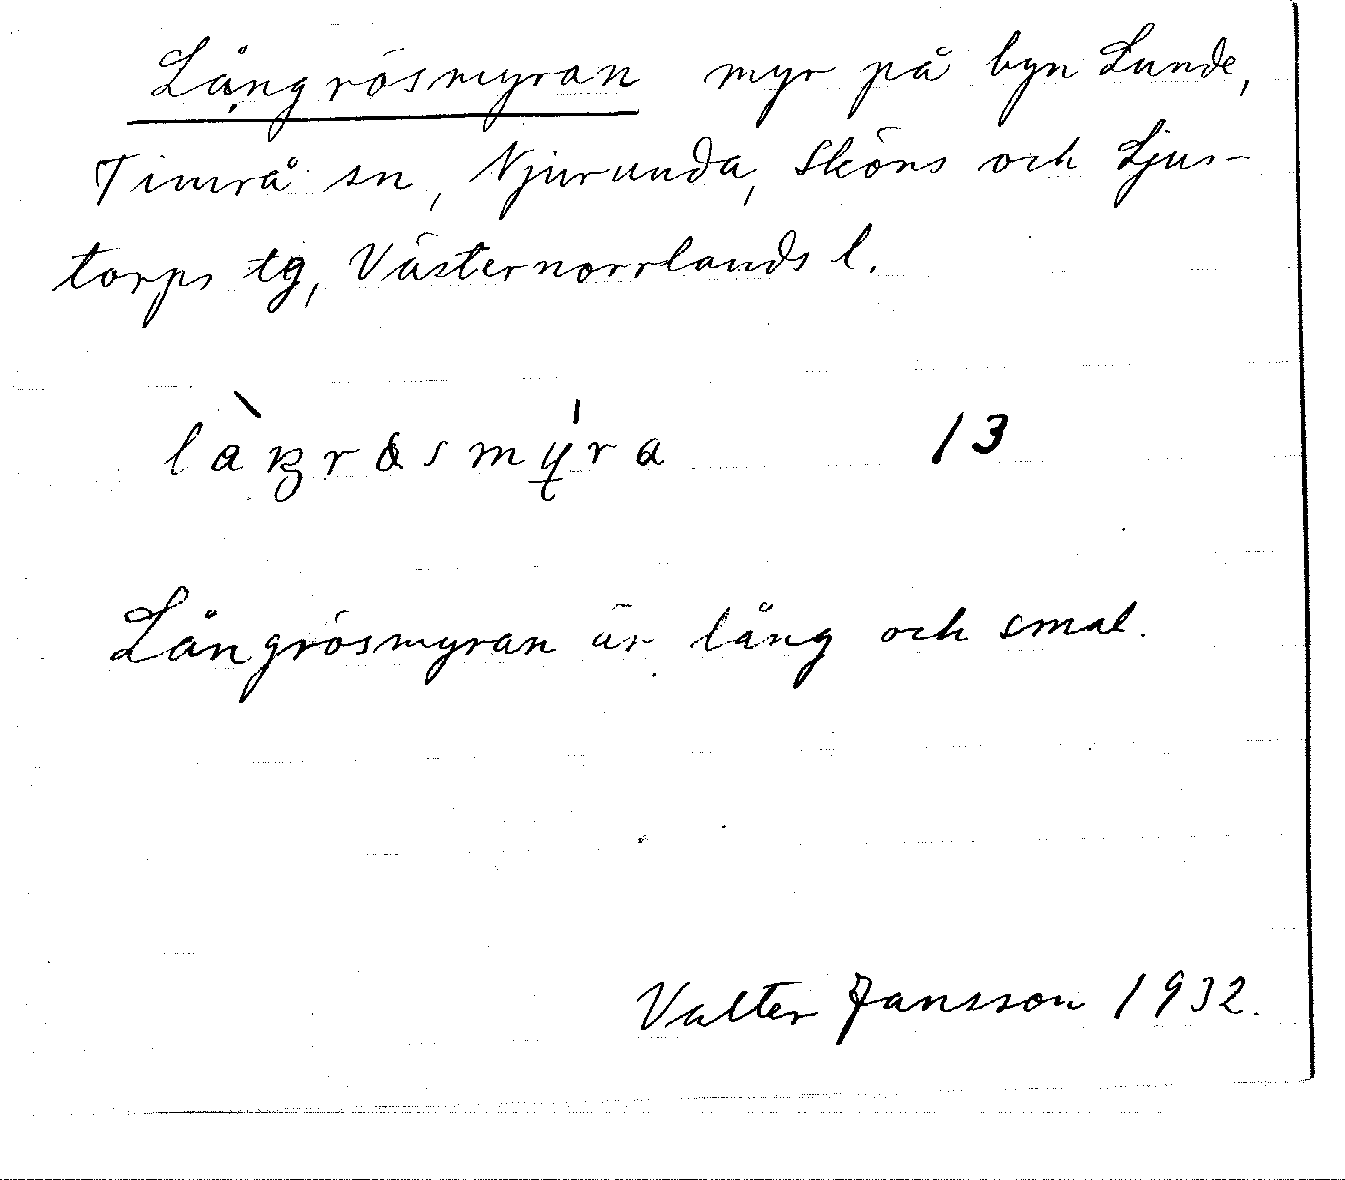 Långrösmyran myr på byn Lunde,
Timrå sn, Njurunda, Sköns och Ljus-
torps tg, Västernorrlands l.
13
Långrösmyran är lång och smal.
Valter Jansson 1932.